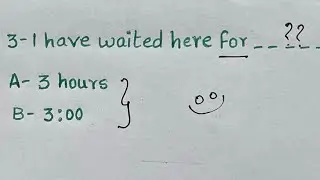 3-I have waited here for _ _ _ _ _ ??
A- 3 hours
B- 3:00